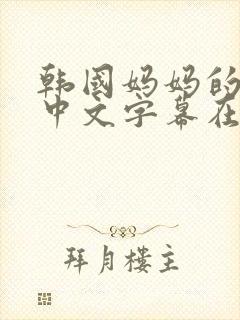 韩国妈妈的
中文字幕在
拜月楼主